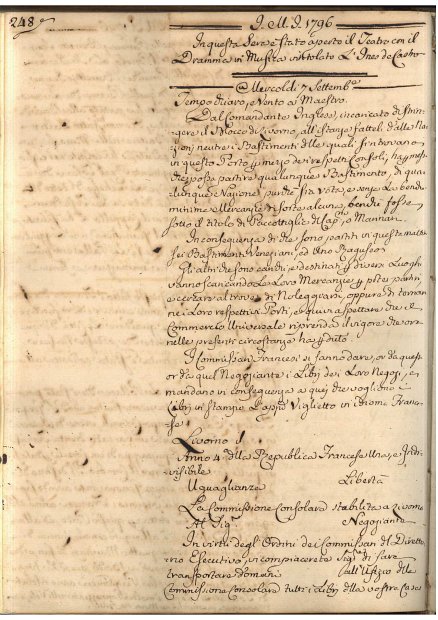 248
J. M. J. 1796
In questa Sera è stato aperto il Teatro con il
Dramma in Musica intitolato L'Ines de Castro
@ Mercoldì 7 Settembe
Tempo chiaro, e Vento a Maestro.
Dal Comandante Inglese incaricato di strin-
gere il Blocco di Livorno, all'istanze fatteli dalle Na-
zioni neutre i Bastimenti delle quali si trovano
in questo Porto p mezzo dei rispettivi Consoli, ha
che possa partire qualunque Bastimento, di qua-
lunque Nazione, purchè sia Voto, e senza
minime Mercanzie di sorte alcuna, benchè fosse
sotto il titolo di Paccottiglie di Capni o Marinari.
In conseguenza di che sono partiti in questa mattina
sei Bastimenti Veneziani, ed Uno Raguseo.
Gli altri che sono carichi, e destinati p diversi Luoghi
vanno scaricando le Loro Mercanzie p poter partire
e cercare altrove di Noleggiarsi, oppure di tornar-
ne i Loro respettivi Porti, e quivi aspettare che il
Commercio Universale riprenda il vigore che ora
nelle presenti circostanze ha perduto.
I Commissari Francesi si fanno dare, or da quest
or da quel Negoziante i Libri dei Loro Negozi, e
mandano in conseguenza a quei che vogliono i
Libri in stampa l'appo Viglietto in idioma France-
se
Livorno
Anno 4. della Repubblica Francese Una, e Indi-
visibile
Uguaglianza Libertà
La Commissione Consolare stabilita a Livorno
Al Sigr Negoziante
In virtù degli Ordini dei Commissari del Diretto-
rio Esecutivo, vi compiacerete Sigre di fare
transportare domani all'Ufizio della
Commissione Consolare tutti i Libri della vostra Casa